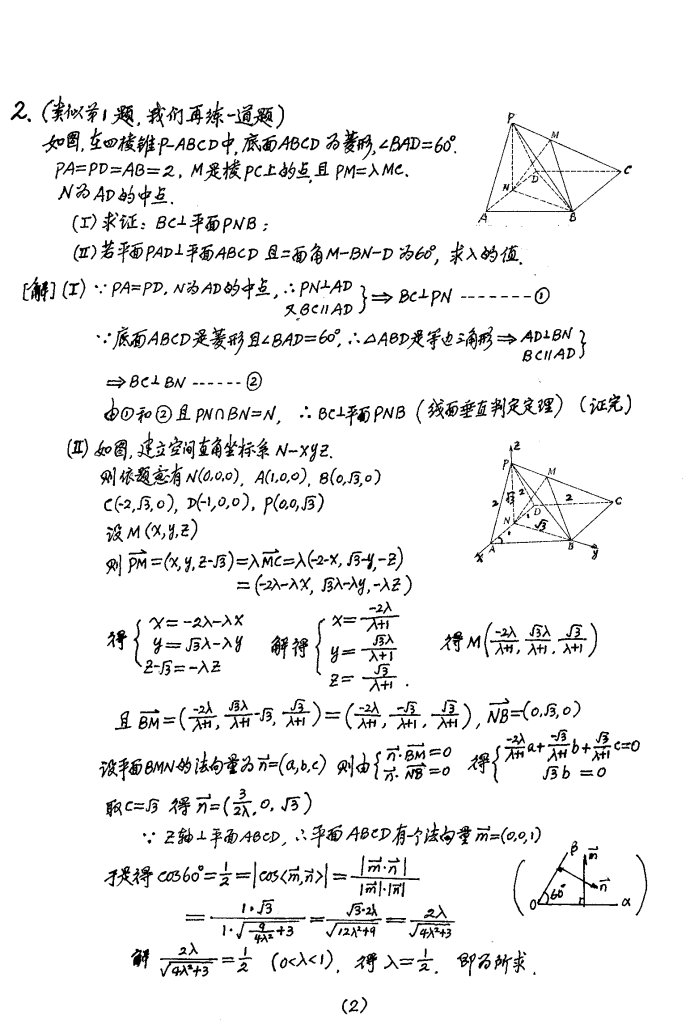 2.(类似第1题,我们再练一道题)
如图,在四棱锥P-ABCD中,底面ABCD为菱形,∠BAD=60°.
PA=PD=AB=2,M是棱PC上的点,且PM=λMC.
N为AD的中点.
(Ⅰ)求证:BC⊥平面PNB;
(Ⅱ)若平面PAD⊥平面ABCD 且二面角M-BN-D为60°,求λ的值.
P
M
N
D
C
A
B
[解](Ⅰ)∵PA=PD,N为AD的中点,∴PN⊥AD
又BC∥AD } ⇒ BC⊥PN -------①
∵底面ABCD是菱形且∠BAD=60°,∴△ABD是等边三角形⇒AD⊥BN
BC∥AD }
⇒BC⊥BN ------②
由①和②且PN∩BN=N, ∴BC⊥平面PNB(线面垂直判定定理)(证完)
(Ⅱ)如图,建立空间直角坐标系N-xyz.
则依题意有N(0,0,0), A(1,0,0), B(0,√3,0)
C(-2,√3,0), D(-1,0,0), P(0,0,√3)
设M(x,y,z)
z
P
M
2
√3
2
2
D
C
N
1
1
√3
A
B
x
y
则PM→=(x,y,z-√3)=λMC→=λ(-2-x,√3-y,-z)
=(-2λ-λx, √3λ-λy, -λz)
得{ x=-2λ-λx 解得{ x=-2λ/(λ+1) 得M(-2λ/(λ+1), √3λ/(λ+1), √3/(λ+1))
y=√3λ-λy y=√3λ/(λ+1)
z-√3=-λz z=√3/(λ+1).
且BM→=(-2λ/(λ+1), √3λ/(λ+1)-√3, √3/(λ+1))=(-2λ/(λ+1), -√3/(λ+1), √3/(λ+1)), NB→=(0,√3,0)
设平面BMN的法向量为n→=(a,b,c) 则由{ n→·BM→=0 得{ -2λ/(λ+1)a+-√3/(λ+1)b+√3/(λ+1)c=0
n→·NB→=0 √3b =0
取c=√3 得n→=(3/2λ, 0, √3)
∵z轴⊥平面ABCD,∴平面ABCD有个法向量m→=(0,0,1)
于是得cos60°=1/2=|cos<m→,n→>|=|m→·n→|/|m→|·|n→|
( β m→ n→ O 60° α )
=1·√3/(1·√(9/4λ²+3))=√3·2λ/√(12λ²+9)=2λ/√(4λ²+3)
解 2λ/√(4λ²+3)=1/2 (0<λ<1), 得λ=1/2. 即为所求.
(2)